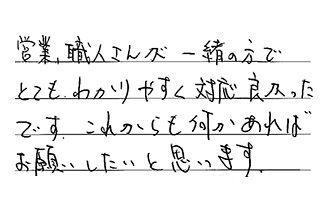 営業,職人さんが一緒の方で
とても.わかりやすく対応良かった
です.これからも何かあれば
お願いしたいと思います.